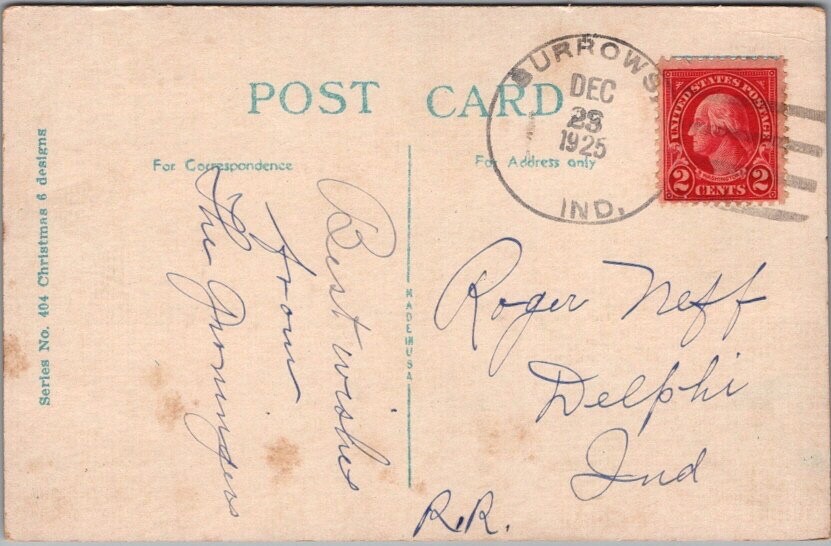 POST CARD
For Correspondence
For Address only
Series No. 404 Christmas 6 designs
MADE IN USA
BURROWS,
DEC
1925
IND.
UNITED STATES POSTAGE
2 CENTS 2
Best wishes
from
The
Roger Neff
Delphi
Ind
R.R.